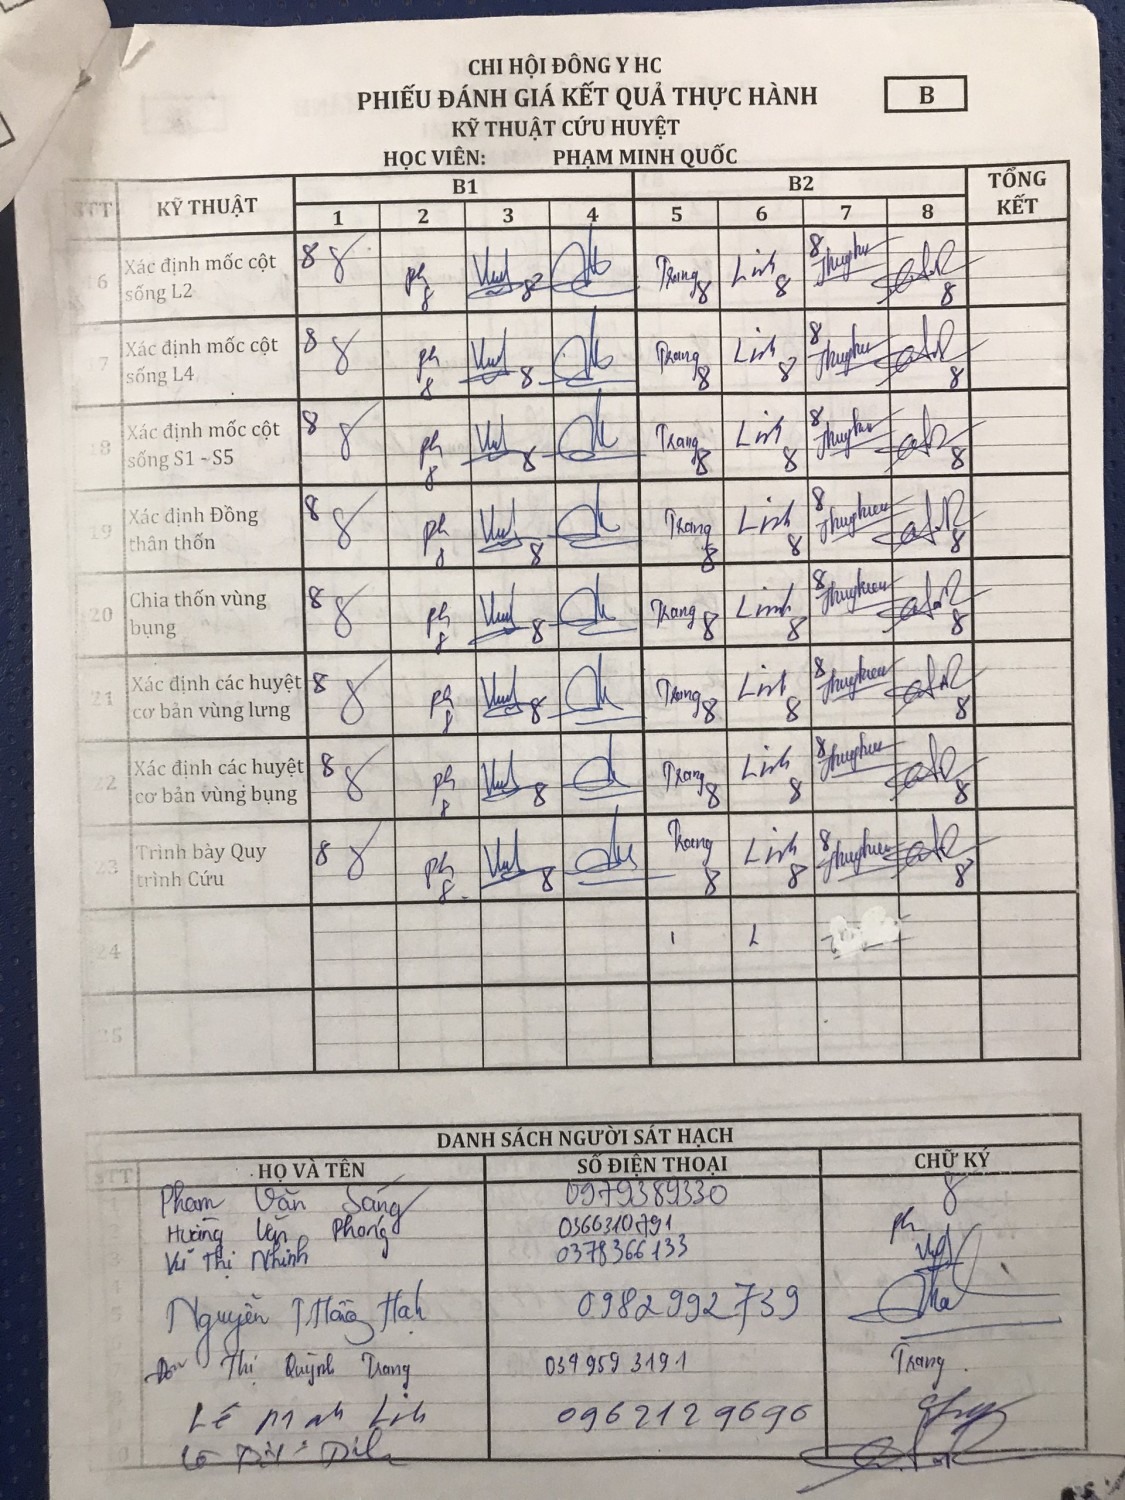 CHI HỘI ĐÔNG Y HC
PHIẾU ĐÁNH GIÁ KẾT QUẢ THỰC HÀNH
B
KỸ THUẬT CỨU HUYỆT
HỌC VIÊN: PHẠM MINH QUỐC
STT KỸ THUẬT B1 B2 TỔNG KẾT
1 2 3 4 5 6 7 8
16 Xác định mốc cột sống L2 8 8 ph 8 8 Trang 8 Linh 8 8 8
17 Xác định mốc cột sống L4 8 8 ph 8 8 Trang 8 Linh 8 8 8
18 Xác định mốc cột sống S1 - S5 8 8 ph 8 8 Trang 8 Linh 8 8 8
19 Xác định Đồng thân thốn 8 8 ph 8 8 Trang 8 Linh 8 8 8
20 Chia thốn vùng bụng 8 8 ph 8 8 Trang 8 Linh 8 8 8
21 Xác định các huyệt cơ bản vùng lưng 8 8 ph 8 8 Trang 8 Linh 8 8 8
22 Xác định các huyệt cơ bản vùng bụng 8 8 ph 8 8 Trang 8 Linh 8 8 8
23 Trình bày Quy trình Cứu 8 8 ph 8 8 Trang 8 Linh 8 8 8
24
25
DANH SÁCH NGƯỜI SÁT HẠCH
STT HỌ VÀ TÊN SỐ ĐIỆN THOẠI CHỮ KÝ
Phạm Văn Sáng 0979389330 8
Hương Văn Phong 0366310791 ph
Vũ Thị Nhinh 0378366133
Nguyễn Hồng Hạnh 0982992739
Thị Quỳnh Trang 0399593191 Trang
Lê Mạnh Linh 0962129696